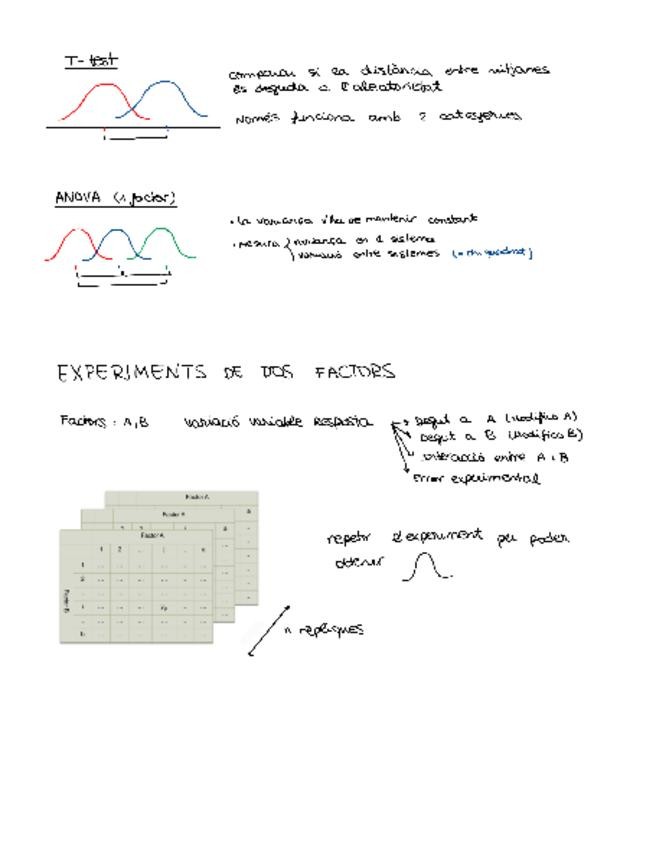 T-test
comparar si la distància entre mitjanes
és deguda a l'aleatorietat
Només funciona amb 2 categories
ANOVA (1 factor)
• La variança s'ha de mantenir constant
• Mesura { variança en el sistema
variació entre sistemes
EXPERIMENTS DE DOS FACTORS
Factors: A, B variació variable resposta → Degut a A (Modifico A)
Degut a B (Modifico B)
Interacció entre A i B
Error experimental
Factor A
Factor A
Factor A
1 2 ... j ... a
1
2
Factor B
i
b
repetir l'experiment per poder
obtenir
n repliques